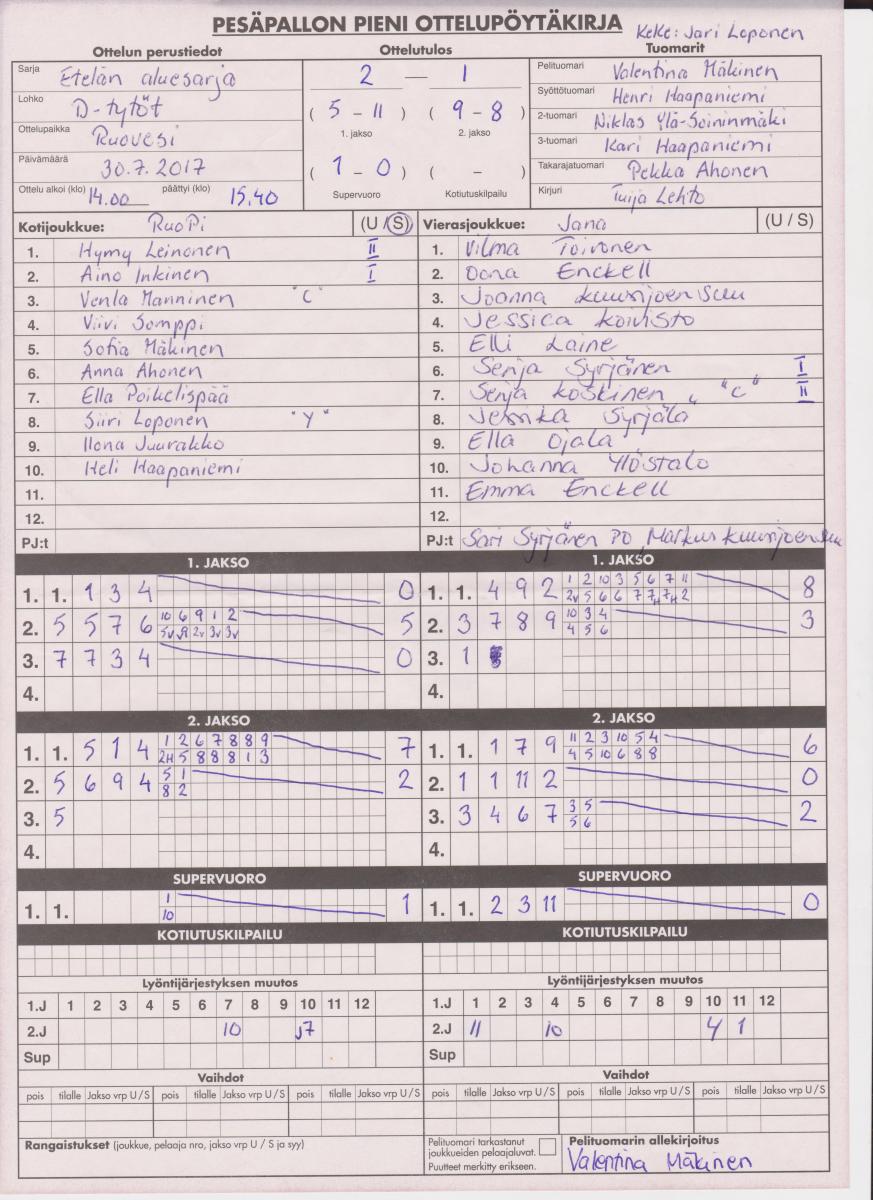 PESÄPALLON PIENI OTTELUPÖYTÄKIRJA
KeKe: Jari Loponen
Ottelun perustiedot Ottelutulos Tuomarit
Sarja Etelän aluesarja 2 — 1 Pelituomari Valentina Mäkinen
Lohko D-tytöt ( 5 - 11 ) ( 9 - 8 ) Syöttötuomari Henri Haapaniemi
Ottelupaikka Ruovesi 1. jakso 2. jakso 2-tuomari Niklas Ylä-Soininmäki
3-tuomari Kari Haapaniemi
Päivämäärä 30.7.2017 ( 1 - 0 ) ( - ) Takarajatuomari Pekka Ahonen
Ottelu alkoi (klo) 14.00 päättyi (klo) 15.40 Supervuoro Kotiutuskilpailu Kirjuri Tuija Lehto
Kotijoukkue: RuoPi (U / S) Vierasjoukkue: Jana (U / S)
1. Hymy Leinonen II 1. Vilma Toivonen
2. Aino Inkinen I 2. Oona Enckell
3. Venla Manninen "C" 3. Joanna Kuusijoensuu
4. Viivi Somppi 4. Jessica Koivisto
5. Sofia Mäkinen 5. Elli Laine
6. Anna Ahonen 6. Senja Syrjänen I
7. Ella Poikelispää 7. Senja Koskinen "C" II
8. Siiri Loponen "Y" 8. Jessika Syrjälä
9. Ilona Juurakko 9. Ella Ojala
10. Heli Haapaniemi 10. Johanna Ylöstalo
11. 11. Emma Enckell
12. 12.
PJ:t PJ:t Sari Syrjänen PO, Markus Kuusijoensuu
1. JAKSO 1. JAKSO
1. 1. 1 3 4 0 1. 1. 4 9 2 1 2 10 3 5 6 7 11 8
2V 5 6 6 7 7H 7H 2
2. 5 5 7 6 10 6 9 1 2 5 2. 3 7 8 9 10 3 4 3
2V 3V 3V 4 5 6
3. 7 7 3 4 0 3. 1
4. 4.
2. JAKSO 2. JAKSO
1. 1. 5 1 4 1 2 6 7 8 8 9 7 1. 1. 1 7 9 11 2 3 10 5 4 6
2H 5 8 8 8 1 3 4 5 10 6 8 8
2. 5 6 9 4 5 1 2 2. 1 1 11 2 0
8 2
3. 5 3. 3 4 6 7 3 5 2
5 6
4. 4.
SUPERVUORO SUPERVUORO
1. 1. 1 1 1. 1. 2 3 11 0
10
KOTIUTUSKILPAILU KOTIUTUSKILPAILU
Lyöntijärjestyksen muutos Lyöntijärjestyksen muutos
1.J 1 2 3 4 5 6 7 8 9 10 11 12 1.J 1 2 3 4 5 6 7 8 9 10 11 12
2.J 10 7 2.J 11 10 4 1
Sup Sup
Vaihdot Vaihdot
pois tilalle Jakso vrp U / S pois tilalle Jakso vrp U / S pois tilalle Jakso vrp U / S pois tilalle Jakso vrp U / S pois tilalle Jakso vrp U / S pois tilalle Jakso vrp U / S
Rangaistukset (joukkue, pelaaja nro, jakso vrp U / S ja syy) Pelituomari tarkastanut joukkueiden pelaajaluvat. Puutteet merkitty erikseen. Pelituomarin allekirjoitus
Valentina Mäkinen